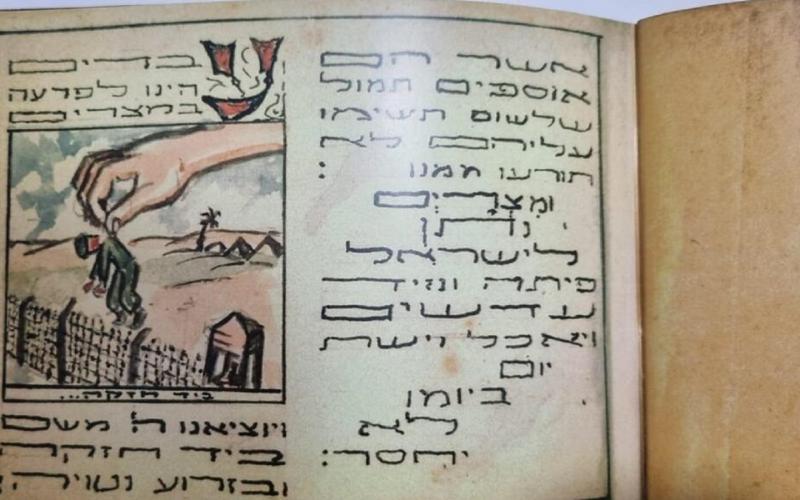 אשר הם
אוספים תמול
שלשום תשימו
עליהם לא
תגרעו ממנו :
מצרים
נתן
לישראל
פיתה ונזיד
עדשים
ויאכל וישת
יום
ביומו
לא
יחסר:
עבדים
הינו לפרעה
במצרים
ביד חזקה...
ויוציאנו ה' משם
ביד חזקה
ובזרוע נטויה